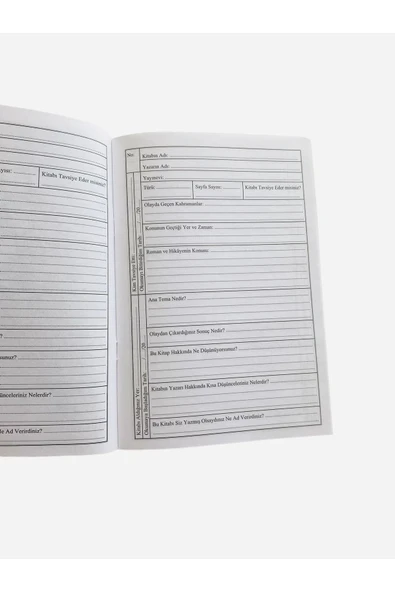 ayısı:
Kitabı Tavsiye Eder misiniz?
?
sunuz?
üşünceleriniz Nelerdir?
Ne Ad Verirdiniz?
No:
Kitabın Adı:
Yazarın Adı:
Yayınevi:
Türü:
Sayfa Sayısı:
Kitabı Tavsiye Eder misiniz?
Olayda Geçen Kahramanlar
Konunun Geçtiği Yer ve Zamanı
Roman ve Hikâyenin Konusu
Ana Tema Nedir?
Olaydan Çıkardığınız Sonuç Nedir?
Bu Kitap Hakkında Ne Düşünüyorsunuz?
Kitabın Yazarı Hakkında Kısa Düşünceleriniz Nelerdir?
Bu Kitabı Siz Yazmış Olsaydınız Ne Ad Verirdiniz?
Kim Tavsiye Etti:
Okumayı Bitirdiğim Tarih: /20
Kitabı Aldığınız Yer:
Okumaya Başladığım Tarih: /20